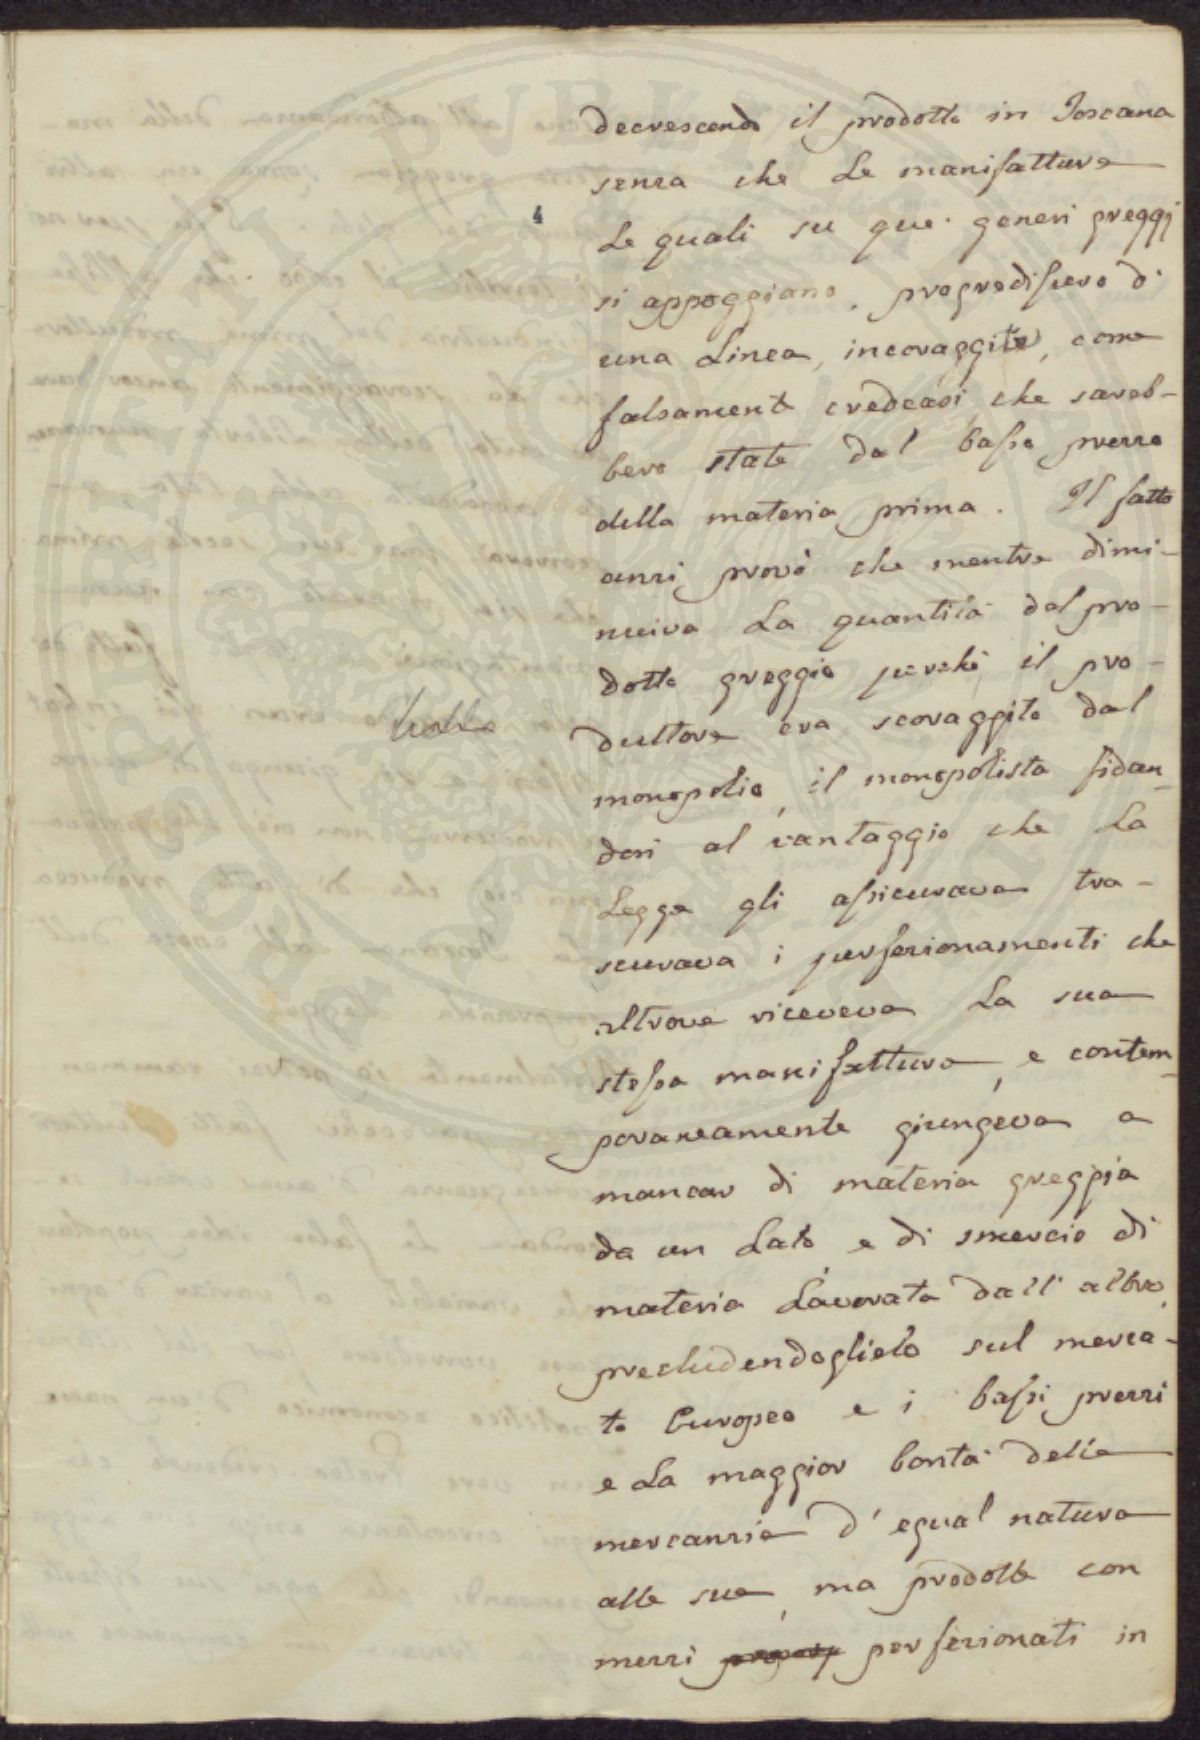 decrescendo il prodotto in Toscana
senza che le manifatture
4
le quali su que' generi greggi
si appoggiano, progredissero di
una linea, incoraggite, come
falsamente credeasi, che sareb-
bero state dal basso prezzo
della materia prima. Il fatto
anzi provò che mentre dimi-
nuiva la quantità del pro-
dotto greggio perchè il pro-
duttore era scoraggito dal
monopolio, il monopolista fidan-
dosi al vantaggio che la
legge gli assicurava tra-
scurava i perfezionamenti che
altrove riceveva la sua
stessa manifattura, e contem-
poraneamente giungeva a
mancar di materia greggia
da un lato e di smercio di
materia lavorata dall'altro,
precludendoglielo sul merca-
to Europeo e i bassi prezzi
e la maggior bontà delle
mercanzie d'egual natura
alle sue, ma prodotte con
mezzi perfezionati in